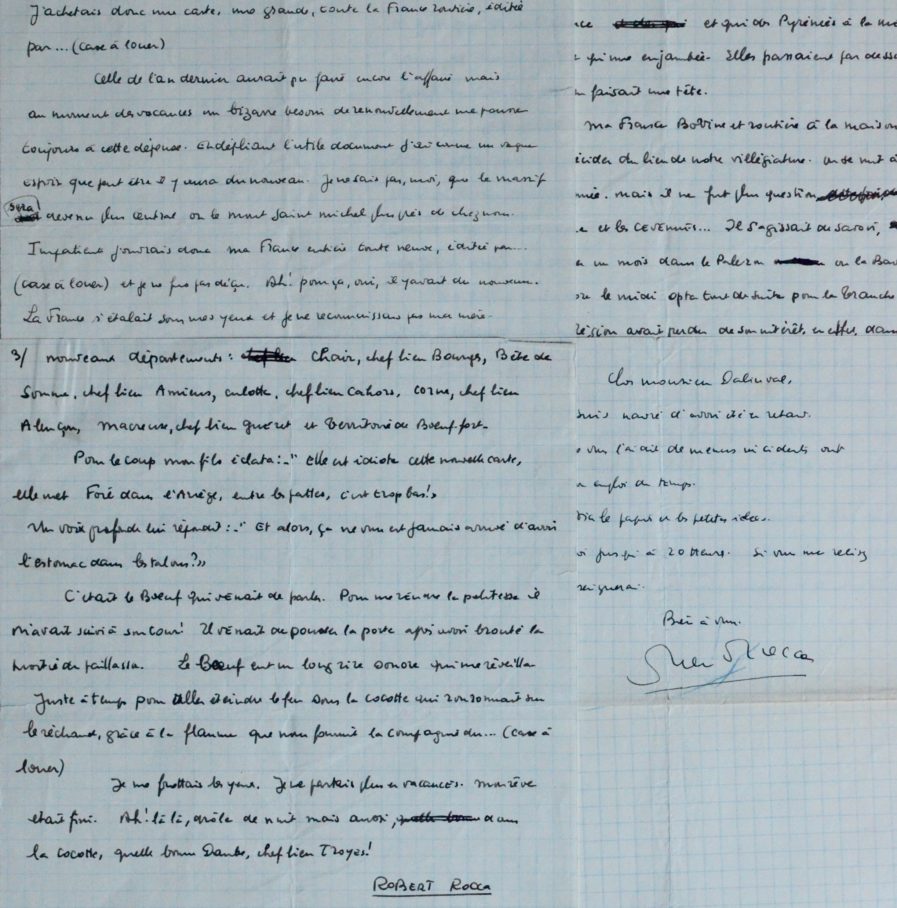 J'achetais donc une carte, une grande, toute la France routière, éditée
par... (case à louer)
Celle de l'an dernier aurait pu faire encore l'affaire mais
au moment des vacances un bizarre besoin de renouvellement me pousse
toujours à cette dépense. En dépliant l'utile document j'ai comme un vague
espoir que peut être il y aura du nouveau. Je ne sais pas, moi, que le massif
sera devenu plus central ou le mont saint michel plus près de chez nous.
Impatient j'ouvrais donc ma France entière toute neuve, éditée par...
(case à louer) et je ne fus pas déçu. Ah! pour ça, oui, il y avait du nouveau.
La France s'étalait sous mes yeux et je ne reconnaissais pas ma mère.
3/ nouveaux départements: Choir, chef lieu Bourges, Bête de
Somme, chef lieu Amiens, culotte, chef lieu Cahors, corne, chef lieu
Alençon, macreuse, chef lieu guéret et territoire de Boeuf-fort.
Pour le coup mon fils éclata:-" Elle est idiote cette nouvelle carte,
elle met Foie dans l'Ariège, entre les pattes, c'est trop bas!"
Un voix profonde lui répondit:-" Et alors, ça ne vous est jamais arrivé d'avoir
l'estomac dans les talons?"
C'était le Boeuf qui venait de parler. Pour me rendre la politesse il
m'avait suivi à son tour! Il venait de pousser la porte après avoir brouté la
moitié du paillasson. Le Boeuf eut un long rire sonore qui me réveilla
Juste à temps pour aller éteindre le feu sous la cocotte qui ronronnait sur
le réchaud, grâce à la flamme que nous fournit la compagnie du... (case à
louer)
Je me frottais les yeux. Je ne partais plus en vacances. mon rêve
était fini. Ah! là là, drôle de nuit mais aussi, dans
la cocotte, quelle bonne Daube, chef lieu Troyes!
ROBERT ROCCA
ce et qui des Pyrénées à la me
qu'une enjambée. Elles passaient par dess
faisait une tête.
ma France Bovine et routière à la maison
écider du lieu de notre villégiature. On se mit à
mais il ne fut plus question
et les Cévennes... Il s'agissait de savoir,
un mois dans le Paleron ou la Bav
le midi opta tout de suite pour la tranche
cision avait perdu de son intérêt, en effet, dans
Cher monsieur Dalinval,
suis navré d'avoir été en retard.
vous l'ai dit de menus incidents ont
emploi du temps.
le papier et les petites idées.
jusqu'à 20 Heures. Si vous me
Bien à vous.
Rocca